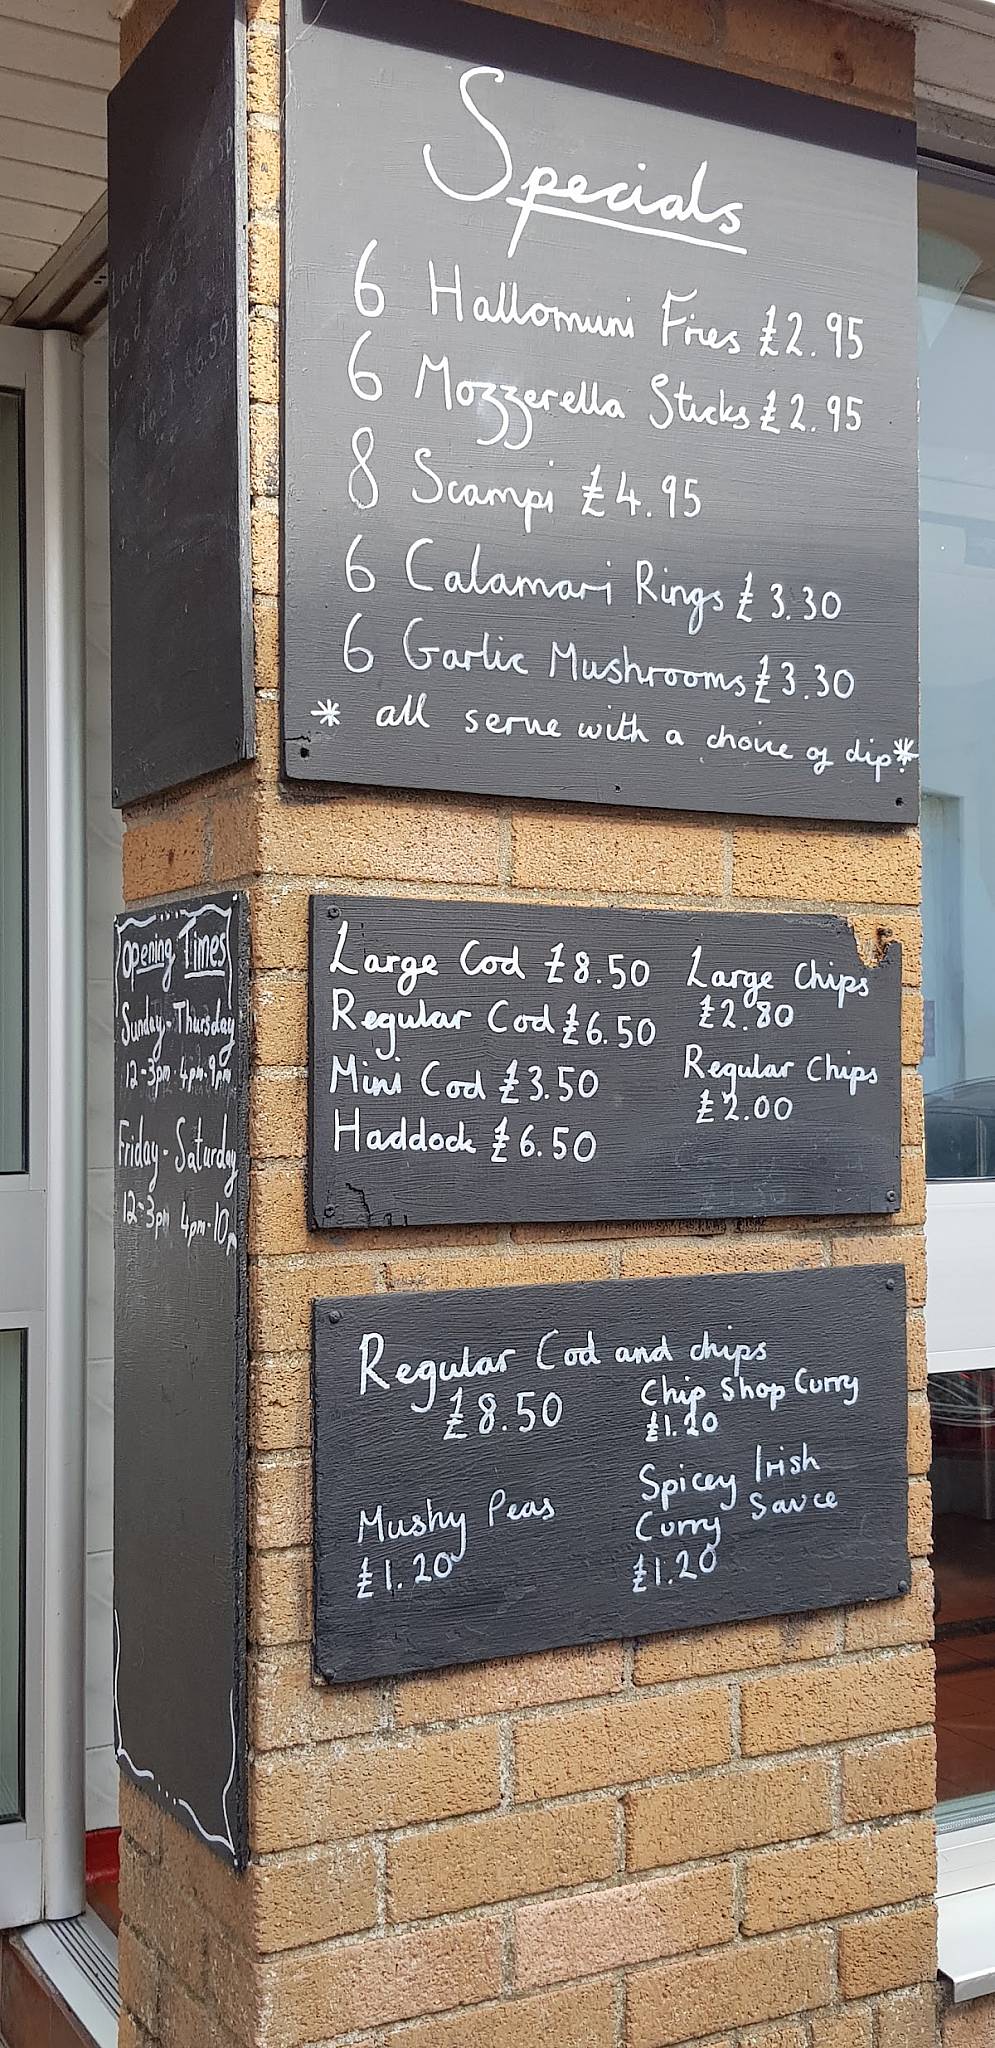 Specials
6 Hallomuni Fries £2.95
6 Mozzerella Sticks £2.95
8 Scampi £4.95
6 Calamari Rings £3.30
6 Garlic Mushrooms £3.30
* all serve with a choice of dip! *
Large
Cod
£6.50
Opening Times
Sunday-Thursday
12-3pm 4pm-9pm
Friday-Saturday
12-3pm 4pm-10pm
Large Cod £8.50
Regular Cod £6.50
Mini Cod £3.50
Haddock £6.50
Large Chips
£2.80
Regular Chips
£2.00
Regular Cod and chips
£8.50
Mushy Peas
£1.20
Chip Shop Curry
£1.20
Spicey Irish
Curry Sauce
£1.20